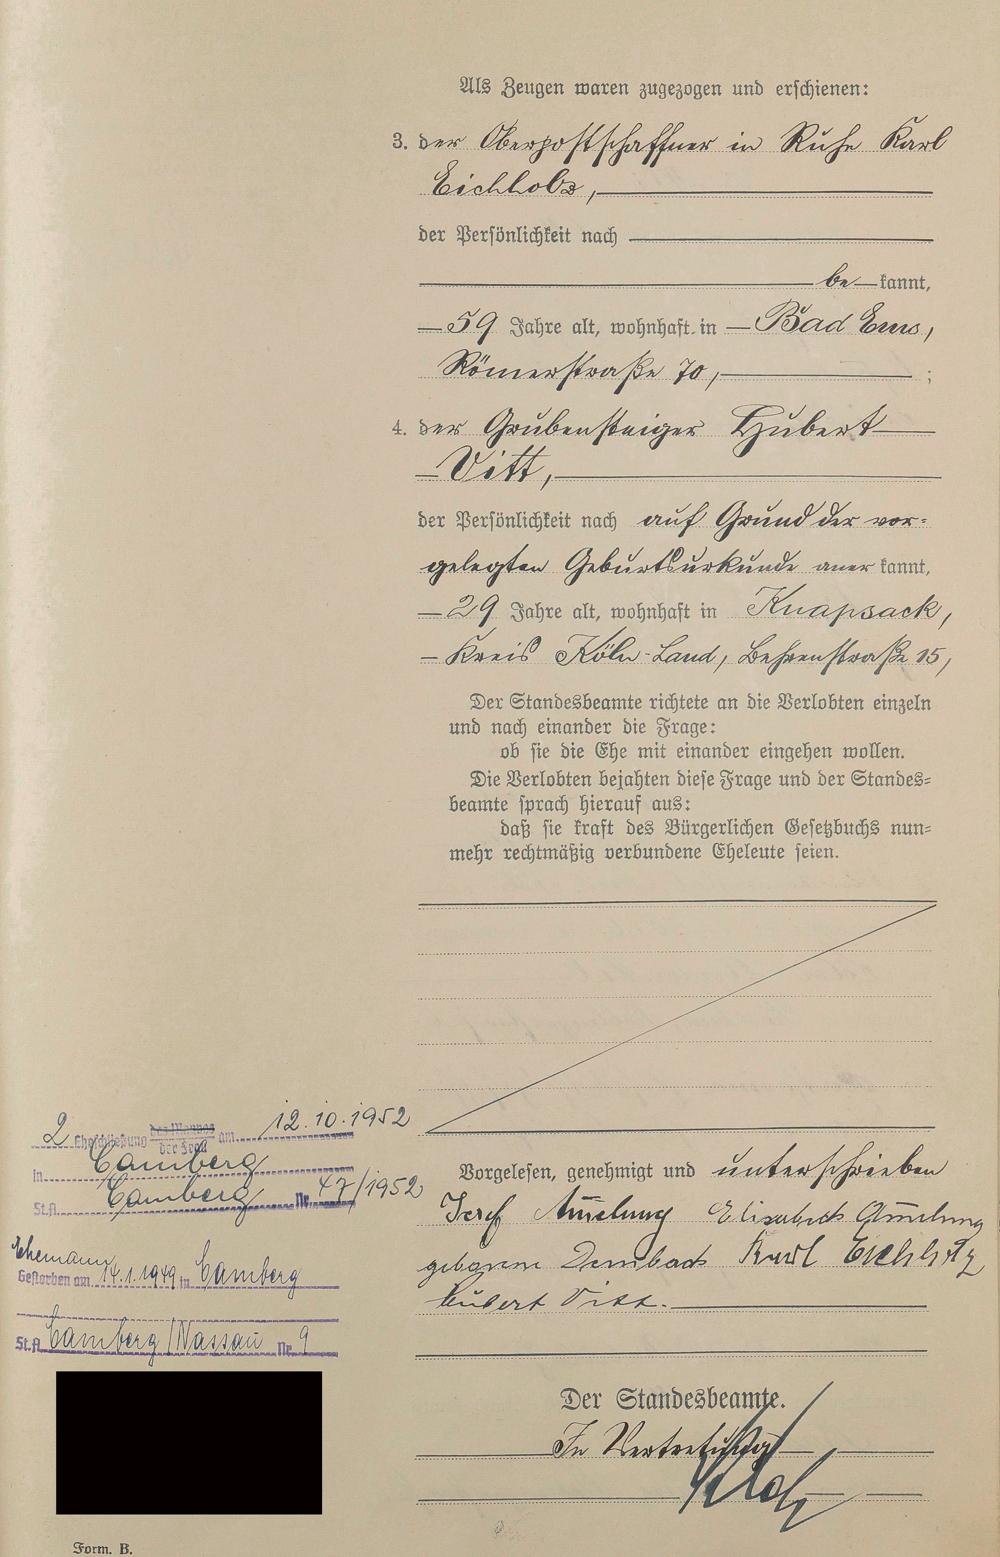 Als Zeugen waren zugezogen und erschienen:
3. der Oberpostschaffner in Ruhe Karl
Eichholz,
der Persönlichkeit nach
be kannt,
59 Jahre alt, wohnhaft in Bad Ems,
Römerstraße 70, ;
4. der Grubensteiger Hubert
Vitt,
der Persönlichkeit nach auf Grund der vor=
gelegten Geburtsurkunde aner kannt,
29 Jahre alt, wohnhaft in Knapsack,
Kreis Köln-Land, Behrenstraße 15,
Der Standesbeamte richtete an die Verlobten einzeln
und nach einander die Frage:
ob sie die Ehe mit einander eingehen wollen.
Die Verlobten bejahten diese Frage und der Standes=
beamte sprach hierauf aus:
daß sie kraft des Bürgerlichen Gesetzbuchs nun=
mehr rechtmäßig verbundene Eheleute seien.
Vorgelesen, genehmigt und unterschrieben
Josef Amelung Elisabeth Amelung
geborene Dembach Karl Eichholz
Hubert Vitt.
Der Standesbeamte.
In Vertretung
2 Eheschließung des Mannes der Frau am 12.10.1952
in Camberg
St.A. Camberg Nr. 47/1952
Ehemann
Gestorben am 14.1.1949 in Camberg
St.A. Camberg/Nassau Nr. 9
Form. B.